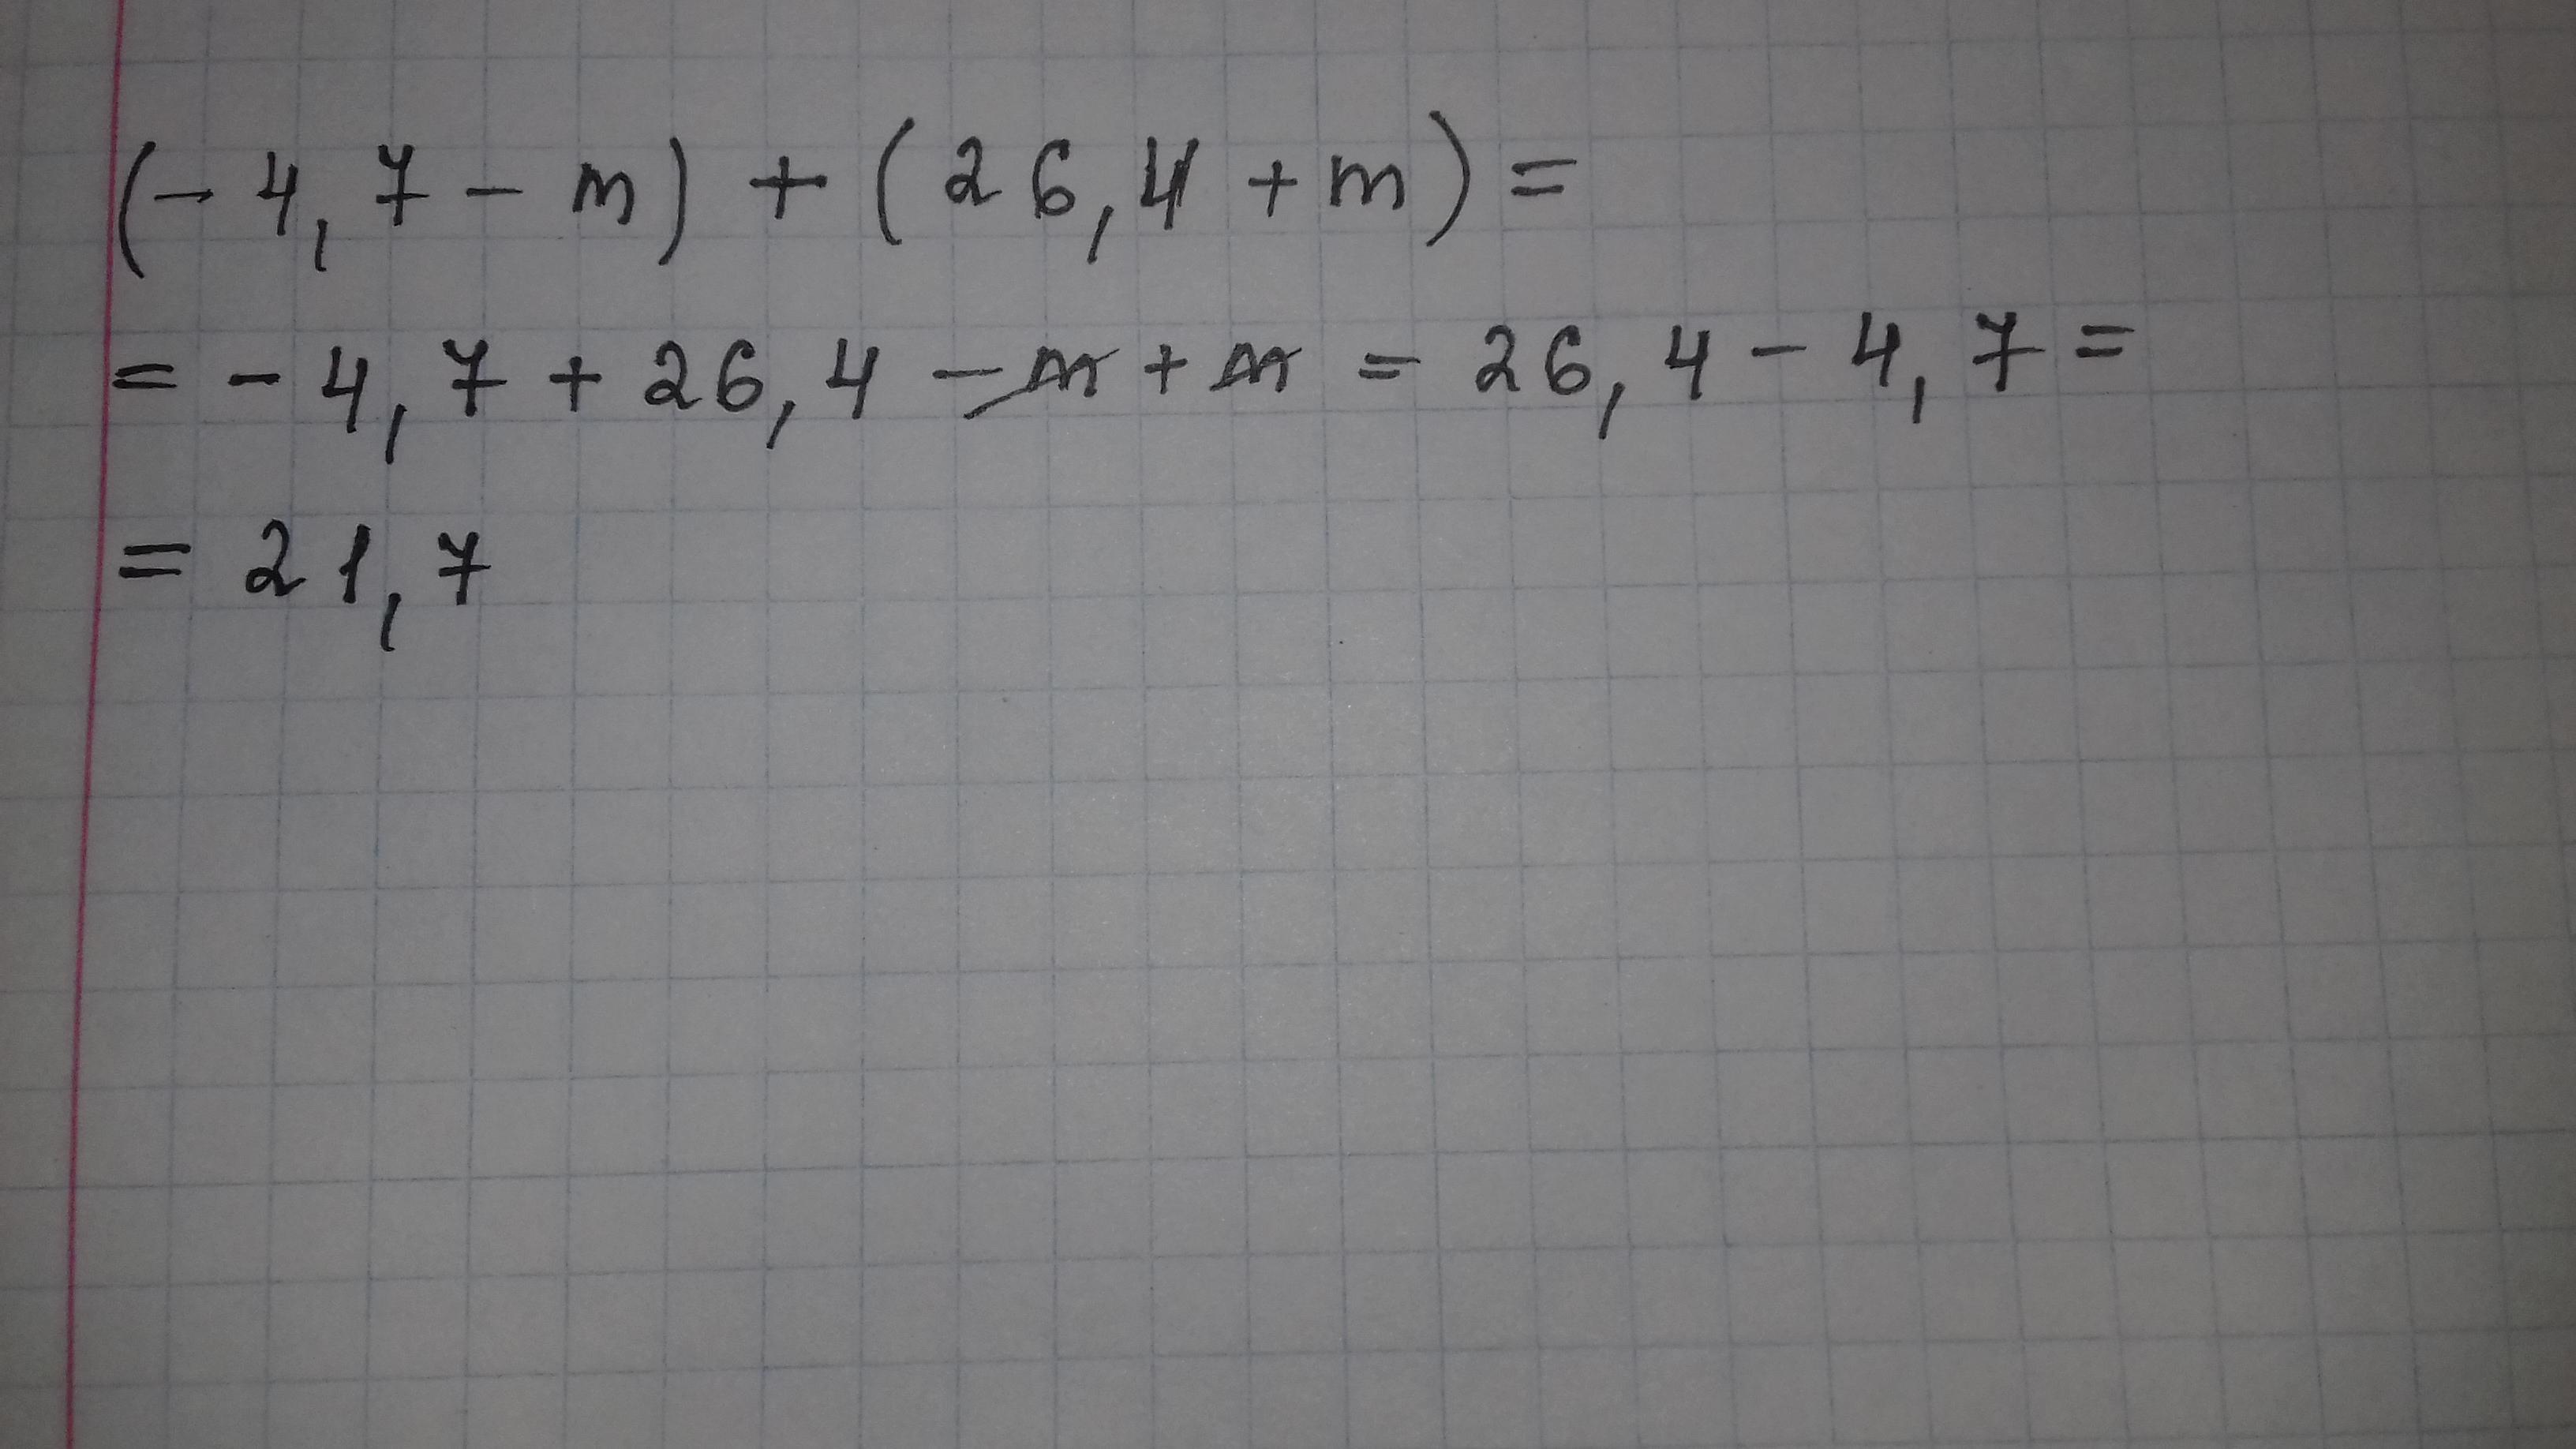 (- 4,7 - m) + (26,4 + m) =
= - 4,7 + 26,4 - m + m = 26,4 - 4,7 =
= 21,7